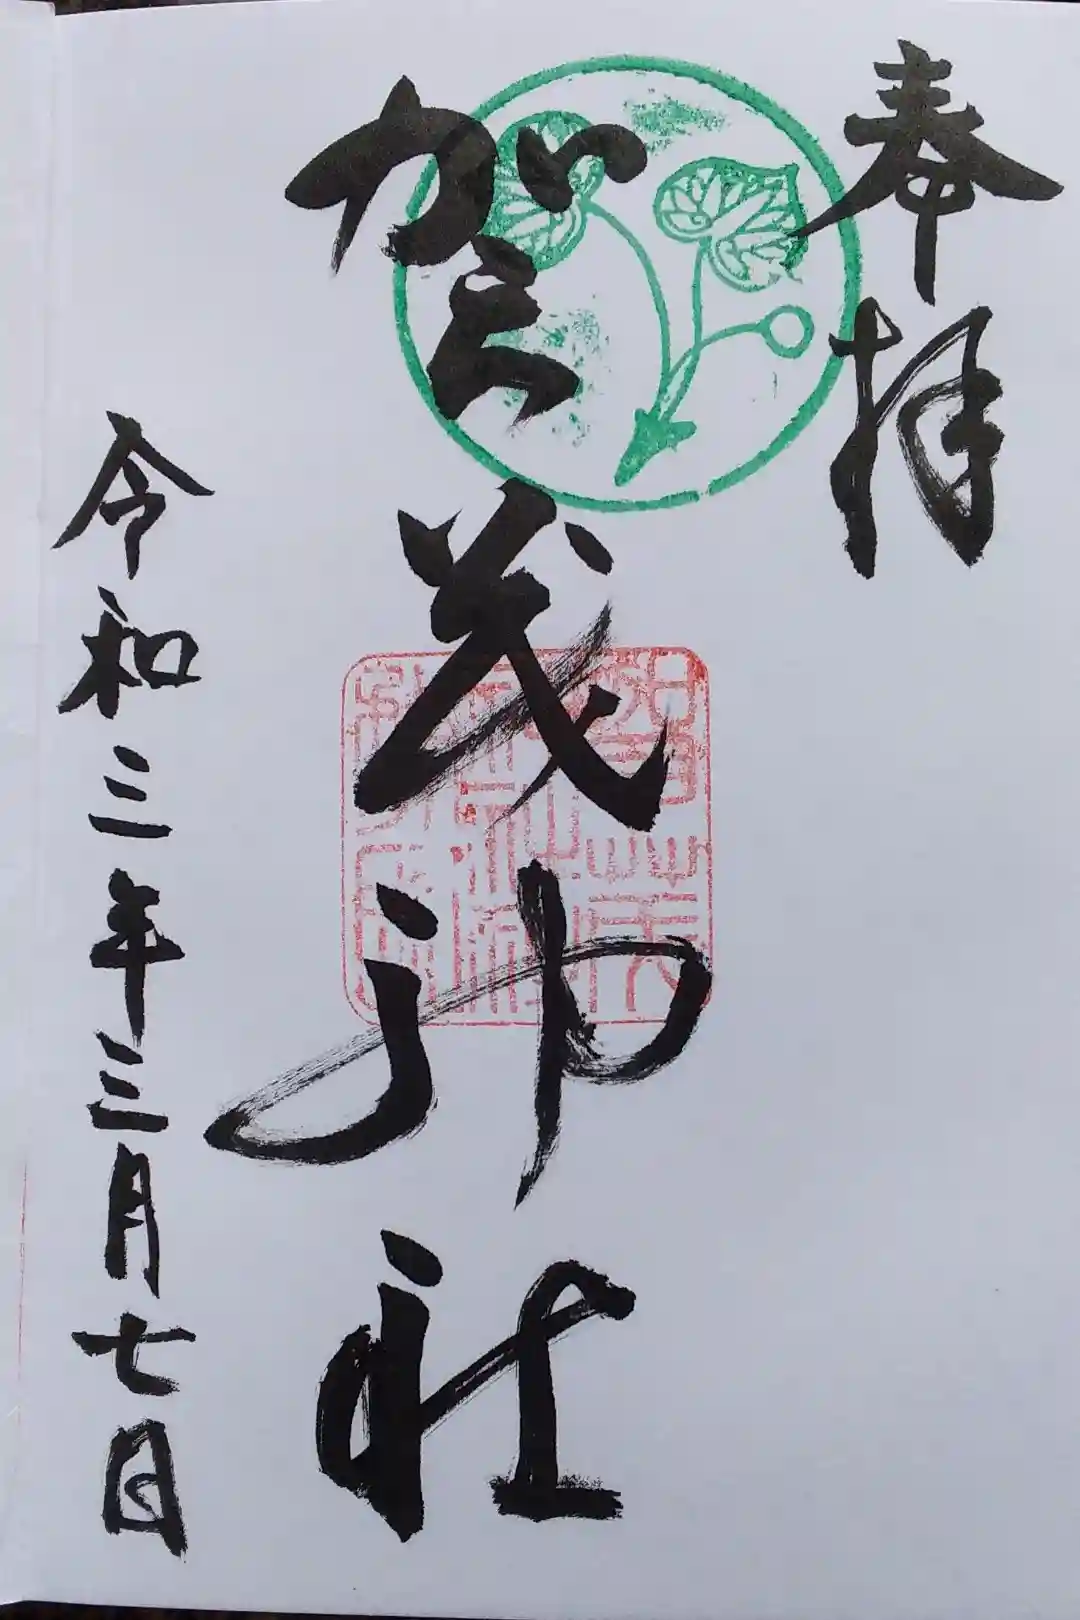 奉拝
賀茂神社
令和三年三月七日